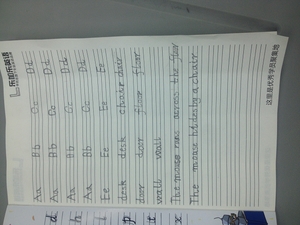 乐加乐英语
Aa Bb Cc Dd
Aa Bb Cc Dd
Aa Bb Cc Dd
Aa Bb Cc Dd
Ee Ee Ee Ee
desk desk chair chair
door door floor floor
wall wall
The mouse runs across the floor
The mouse hides by a chair
这里是优秀学员聚集地